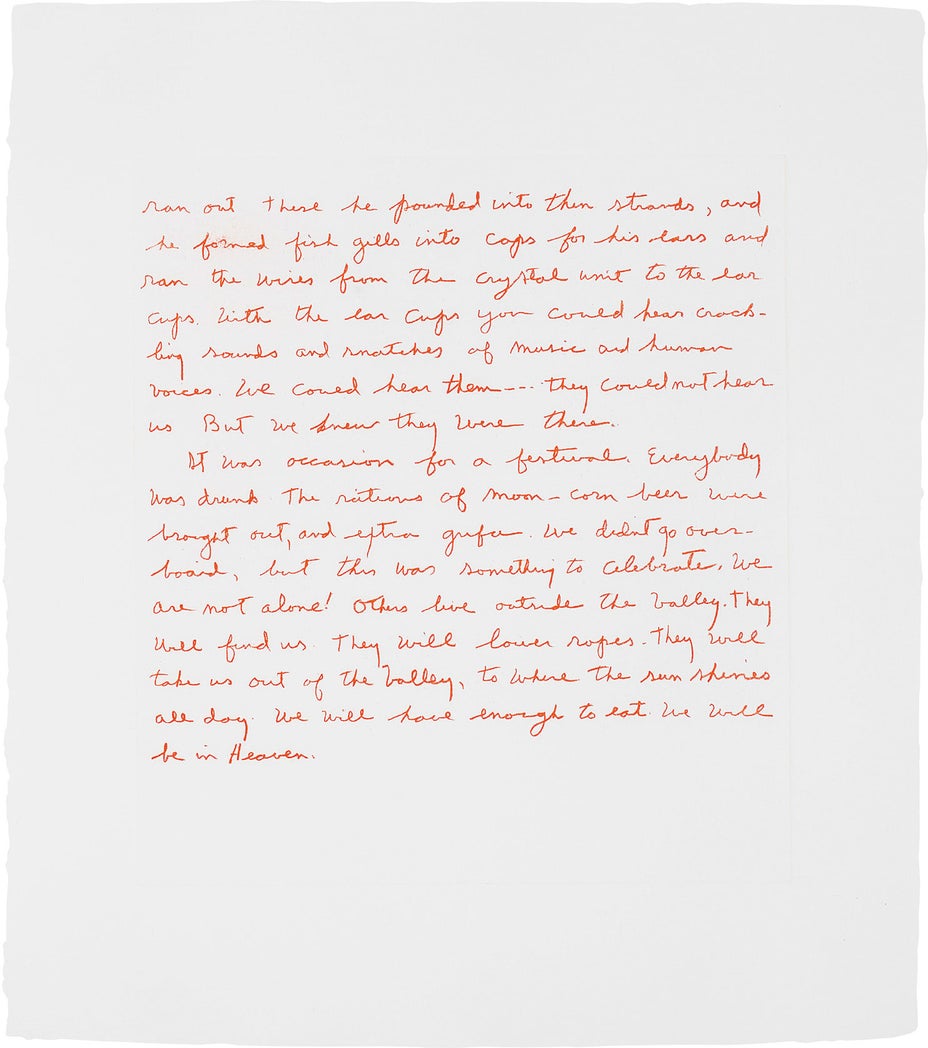 ran out these he pounded into thin strands, and
he formed fish gills into cups for his ears and
ran the wires from the crystal unit to the ear
cups. With the ear cups you could hear crack-
ling sounds and snatches of music and human
voices. We could hear them---- they could not hear
us But we knew they were there.
It was occasion for a festival. Everybody
was drunk The rations of moon-corn beer were
brought out, and extra grifa. We didnt go over-
board, but this was something to celebrate. We
are not alone! Others live outside the Valley. They
will find us. They will lower ropes. They will
take us out of the Valley, to where the sun shines
all day. We will have enough to eat. We will
be in Heaven.